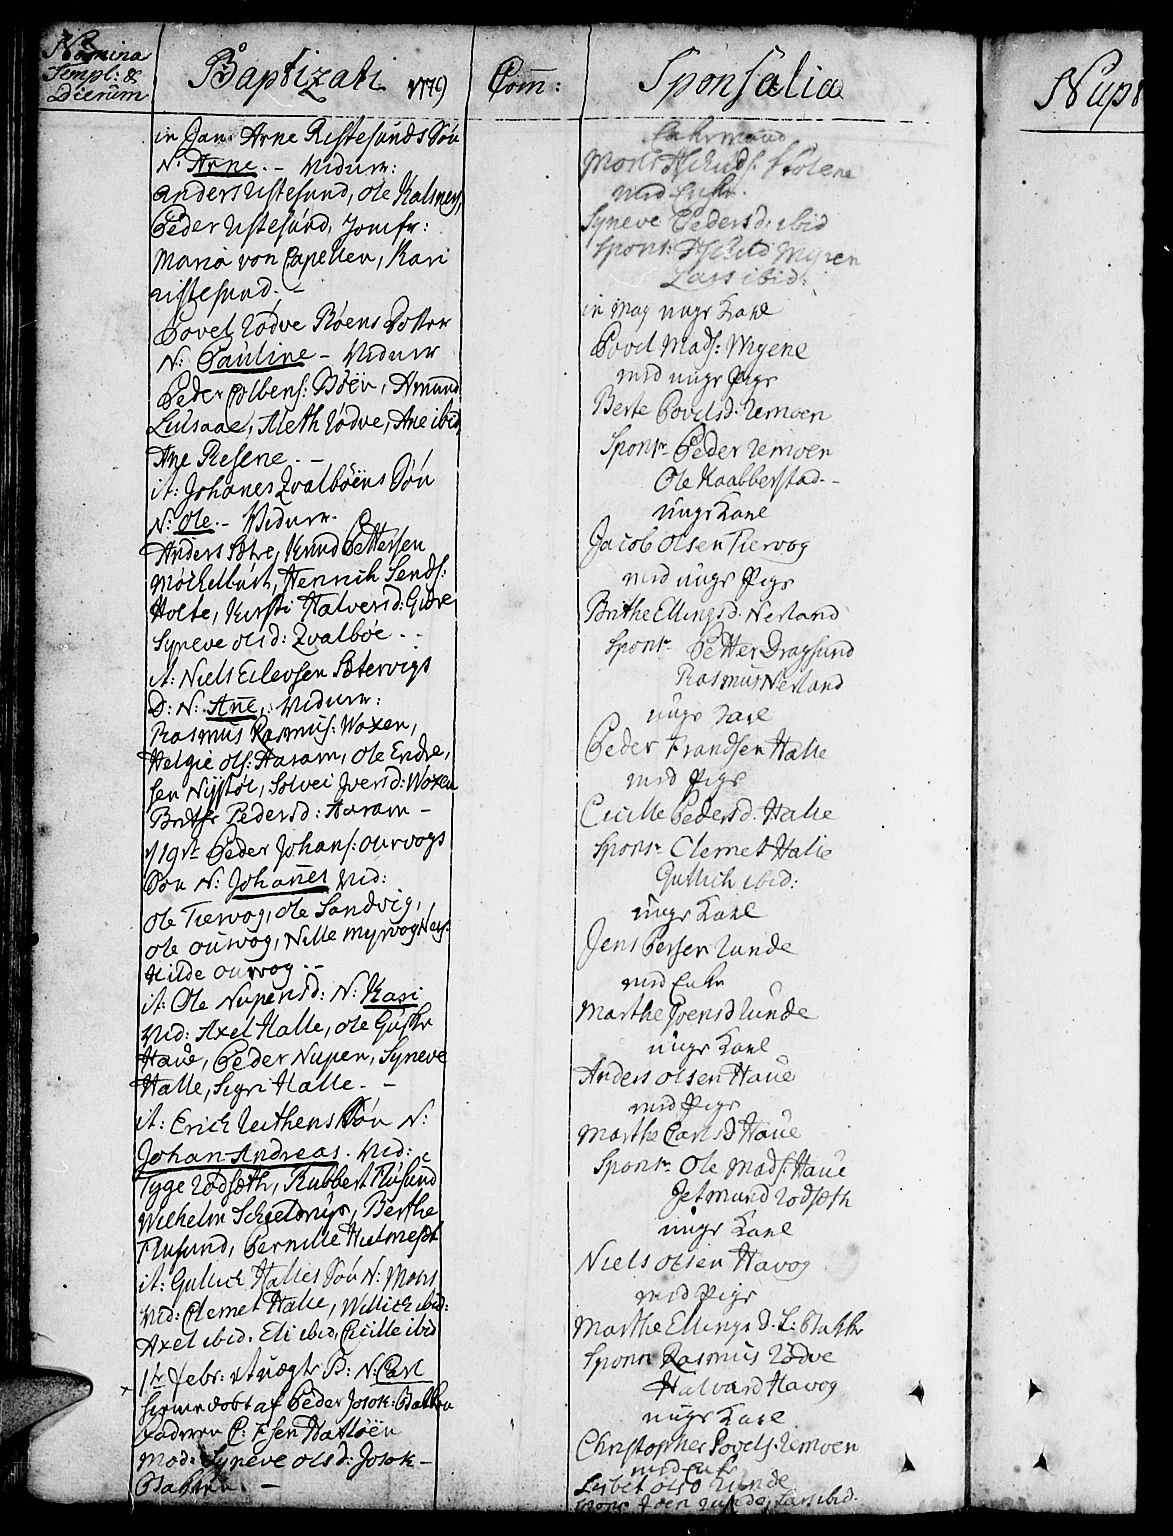 Nomina
Templ: &
Dierum
Baptizati 1779
Com:
Sponsalia
Nup
in Jan: Arne Ristesunds Søn
N: Arne. - Vidnr:
Anders Ristesund, Ole Kalsnes,
Peder Ristesund, Jomfr:
Maria von Capellen, Kari
Ristesund. -
Povel Rødve Røens Dotter
N: Pauline - Vidner
Peder Colbens: Bøen, Amund
Lilsaae, Aleth Rødve, Ane ibid,
Ane Resene. -
it: Johanes Qvalbøens Søn
N: Ole. - Vidner.
Anders Sætre, Knud Pettersen
Møckelbust, Henrich Sends:
Holte, Kirsti Halversd: Gidre
Syneve Olsd: Qvalbøe. -
it: Niels Eilevsen Sætervigs
D: N: Ane, Vidner:
Rasmus Rasmus: Woxen,
Helgie Ols: Haram, Ole Endre,
sen Nystøl, Solvei Iversd: Woxen
Brithe Pedersd: Haram -
Peder Johans: Ourvogs
Søn N: Johanes Vid:
Ole Tiervog, Ole Sandvig,
Ole Ourvog, Nille Myrvog
Hilde Ourvog. -
it: Ole Nupens d: N: Kari
Vid: Axel Halle, Ole
Haue, Peder Nupen, Syneve
Halle, Sigri Halle. -
it: Erich Søn N:
Johan Andreas. Vid:
Tyge Rødsæth, Rubbert Flusund
Wilhelm Berthe
Flusund, Pernille
it: Gullich Halles Søn N: Mons
Vid: Clemet Halle, Willich ibid:
Axel ibid. Eli ibid, Cicille ibid
1te Febr: N: Carl
døbt af Peder
Faderen P: Hatløen
Mod: Syneve Olsd:
Enkemand
Mons Stolene
med Enke.
Syneve Pedersd: ibid
Spons: Myren
Lars ibid:
in May unge Karl
Povel Mads: Myene
med unge Pige
Berte Povelsd: Remøen
Sponsr Peder Remøen
Ole Kaabberstad. -
unge Karl
Jacob Olsen Tiervog
med unge Pige
Brithe Ellingsd. Nerland
Sponsr Petter Dragsund
Rasmus Nerland
unge Karl
Peder Frandsen Halle
med Pige
Cicille Pedersd. Halle
Sponsr Clemet Halle
Gullich ibid:
unge Karl
Jens Persen Runde
med Enke
Marthe Joensd Runde
unge Karl
Anders Olsen Haue
med Pige
Marthe Carlsd Haue
Sponsr Ole Mads: Haue
Jetmund Rødsæth
unge Karl
Niels Olsen Havog
med Pige
Marthe Ellings D. L: Bakke
Sponr Rasmus Rødve
Halvard Havog
unge Karl
Christopher Povels: Remøen
med Enke
Lisbet Olsd Runde
Spons Joen Runde, Lars ibid.